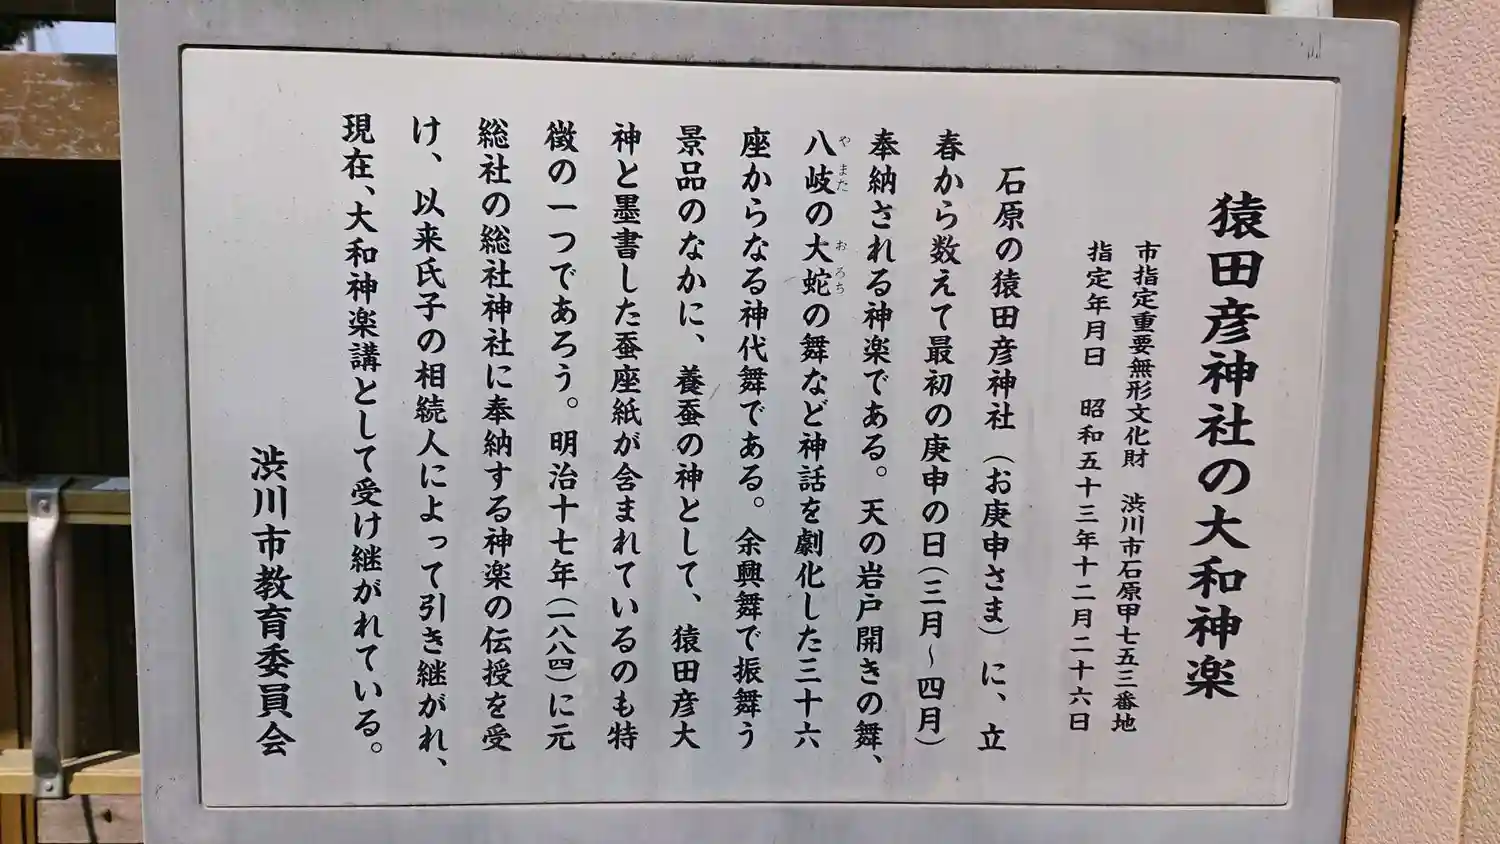 猿田彦神社の大和神楽
市指定重要無形文化財　渋川市石原甲七五三番地
指定年月日　昭和五十三年十二月二十六日
石原の猿田彦神社（お庚申さま）に、立
春から数えて最初の庚申の日（三月～四月）
奉納される神楽である。天の岩戸開きの舞、
八岐の大蛇の舞など神話を劇化した三十六
や　また　お　ろち
座からなる神代舞である。余興舞で振舞う
景品のなかに、養蚕の神として、猿田彦大
神と墨書した蚕座紙が含まれているのも特
徴の一つであろう。明治十七年（一八八四）に元
総社の総社神社に奉納する神楽の伝授を受
け、以来氏子の相続人によって引き継がれ、
現在、大和神楽講として受け継がれている。
渋川市教育委員会